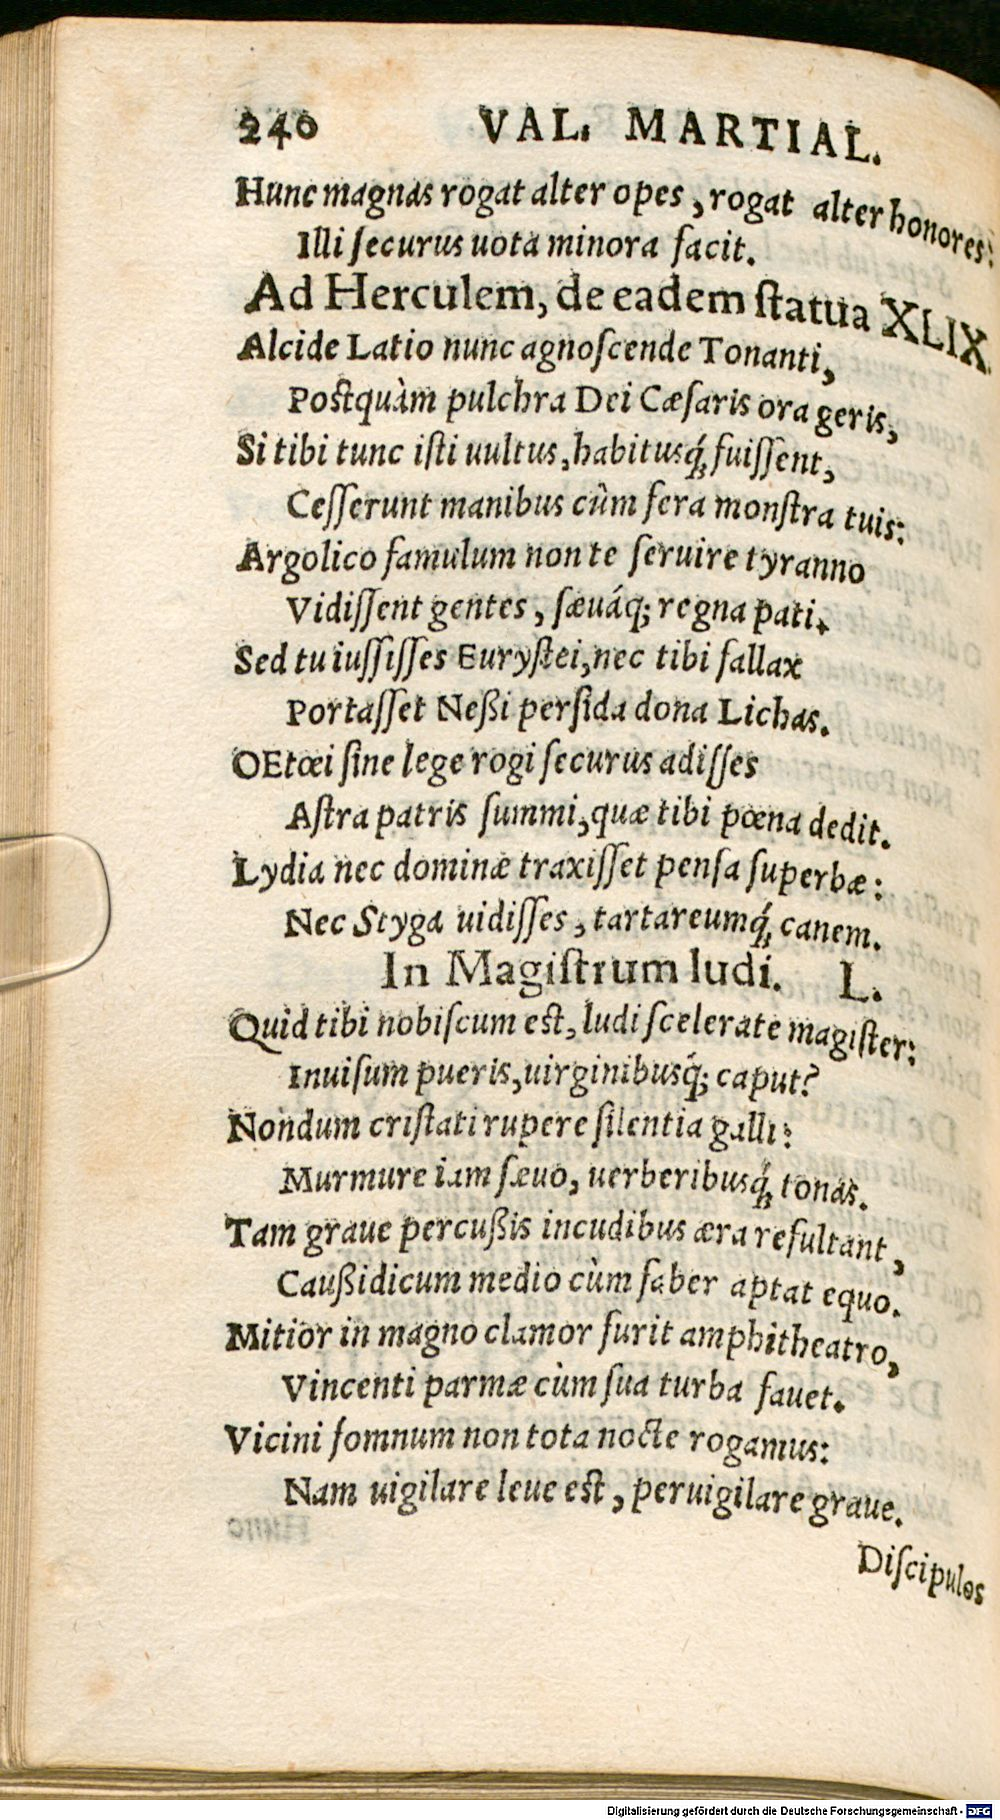 240 VAL. MARTIAL.
Hunc magnas rogat alter opes, rogat alter honores:
Illi ſecurus uota minora facit.
Ad Herculem, de eadem ſtatua XLIX.
Alcide Latio nunc agnoſcende Tonanti,
Poſtquàm pulchra Dei Cæſaris ora geris,
Si tibi tunc iſti uultus, habitusq́; fuiſſent,
Ceſſerunt manibus cùm fera monſtra tuis:
Argolico famulum non te ſeruire tyranno
Vidiſſent gentes, ſæuáq; regna pati.
Sed tu iuſſiſſes Euryſtei, nec tibi fallax
Portaſſet Neßi perfida dona Lichas.
OEtœi ſine lege rogi ſecurus adiſſes
Aſtra patris ſummi, quæ tibi pœna dedit.
Lydia nec dominæ traxiſſet penſa ſuperbæ:
Nec Styga uidiſſes, tartareumq́; canem.
In Magiſtrum ludi. L.
Quid tibi nobiſcum eſt, ludi ſcelerate magiſter:
Inuiſum pueris, uirginibusq́; caput?
Nondum criſtati rupere ſilentia galli:
Murmure iam ſæuo, uerberibusq́; tonas.
Tam graue percußis incudibus æra reſultant,
Caußidicum medio cùm faber aptat equo.
Mitior in magno clamor furit amphitheatro,
Vincenti parmæ cùm ſua turba fauet.
Vicini ſomnum non tota nocte rogamus:
Nam uigilare leue eſt, peruigilare graue.
Diſcipulos
Digitalisierung gefördert durch die Deutsche Forschungsgemeinschaft - DFG